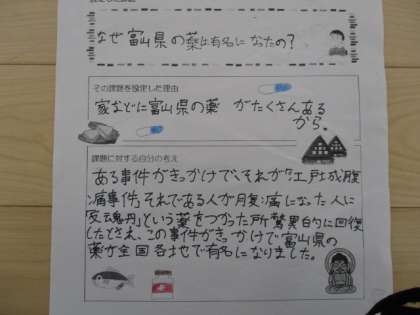 なぜ富山県の薬は有名になったの?
その課題を設定した理由
家などに富山県の薬 がたくさんある
から。
課題に対する自分の考え
ある事件がきっかけで、それが「江戸城腹
痛事件」それである人が腹痛になった人に
「反魂丹」という薬をつかった所驚異的に回復
したとさ、この事件がきっかけで富山県の
薬が全国各地で有名になりました。